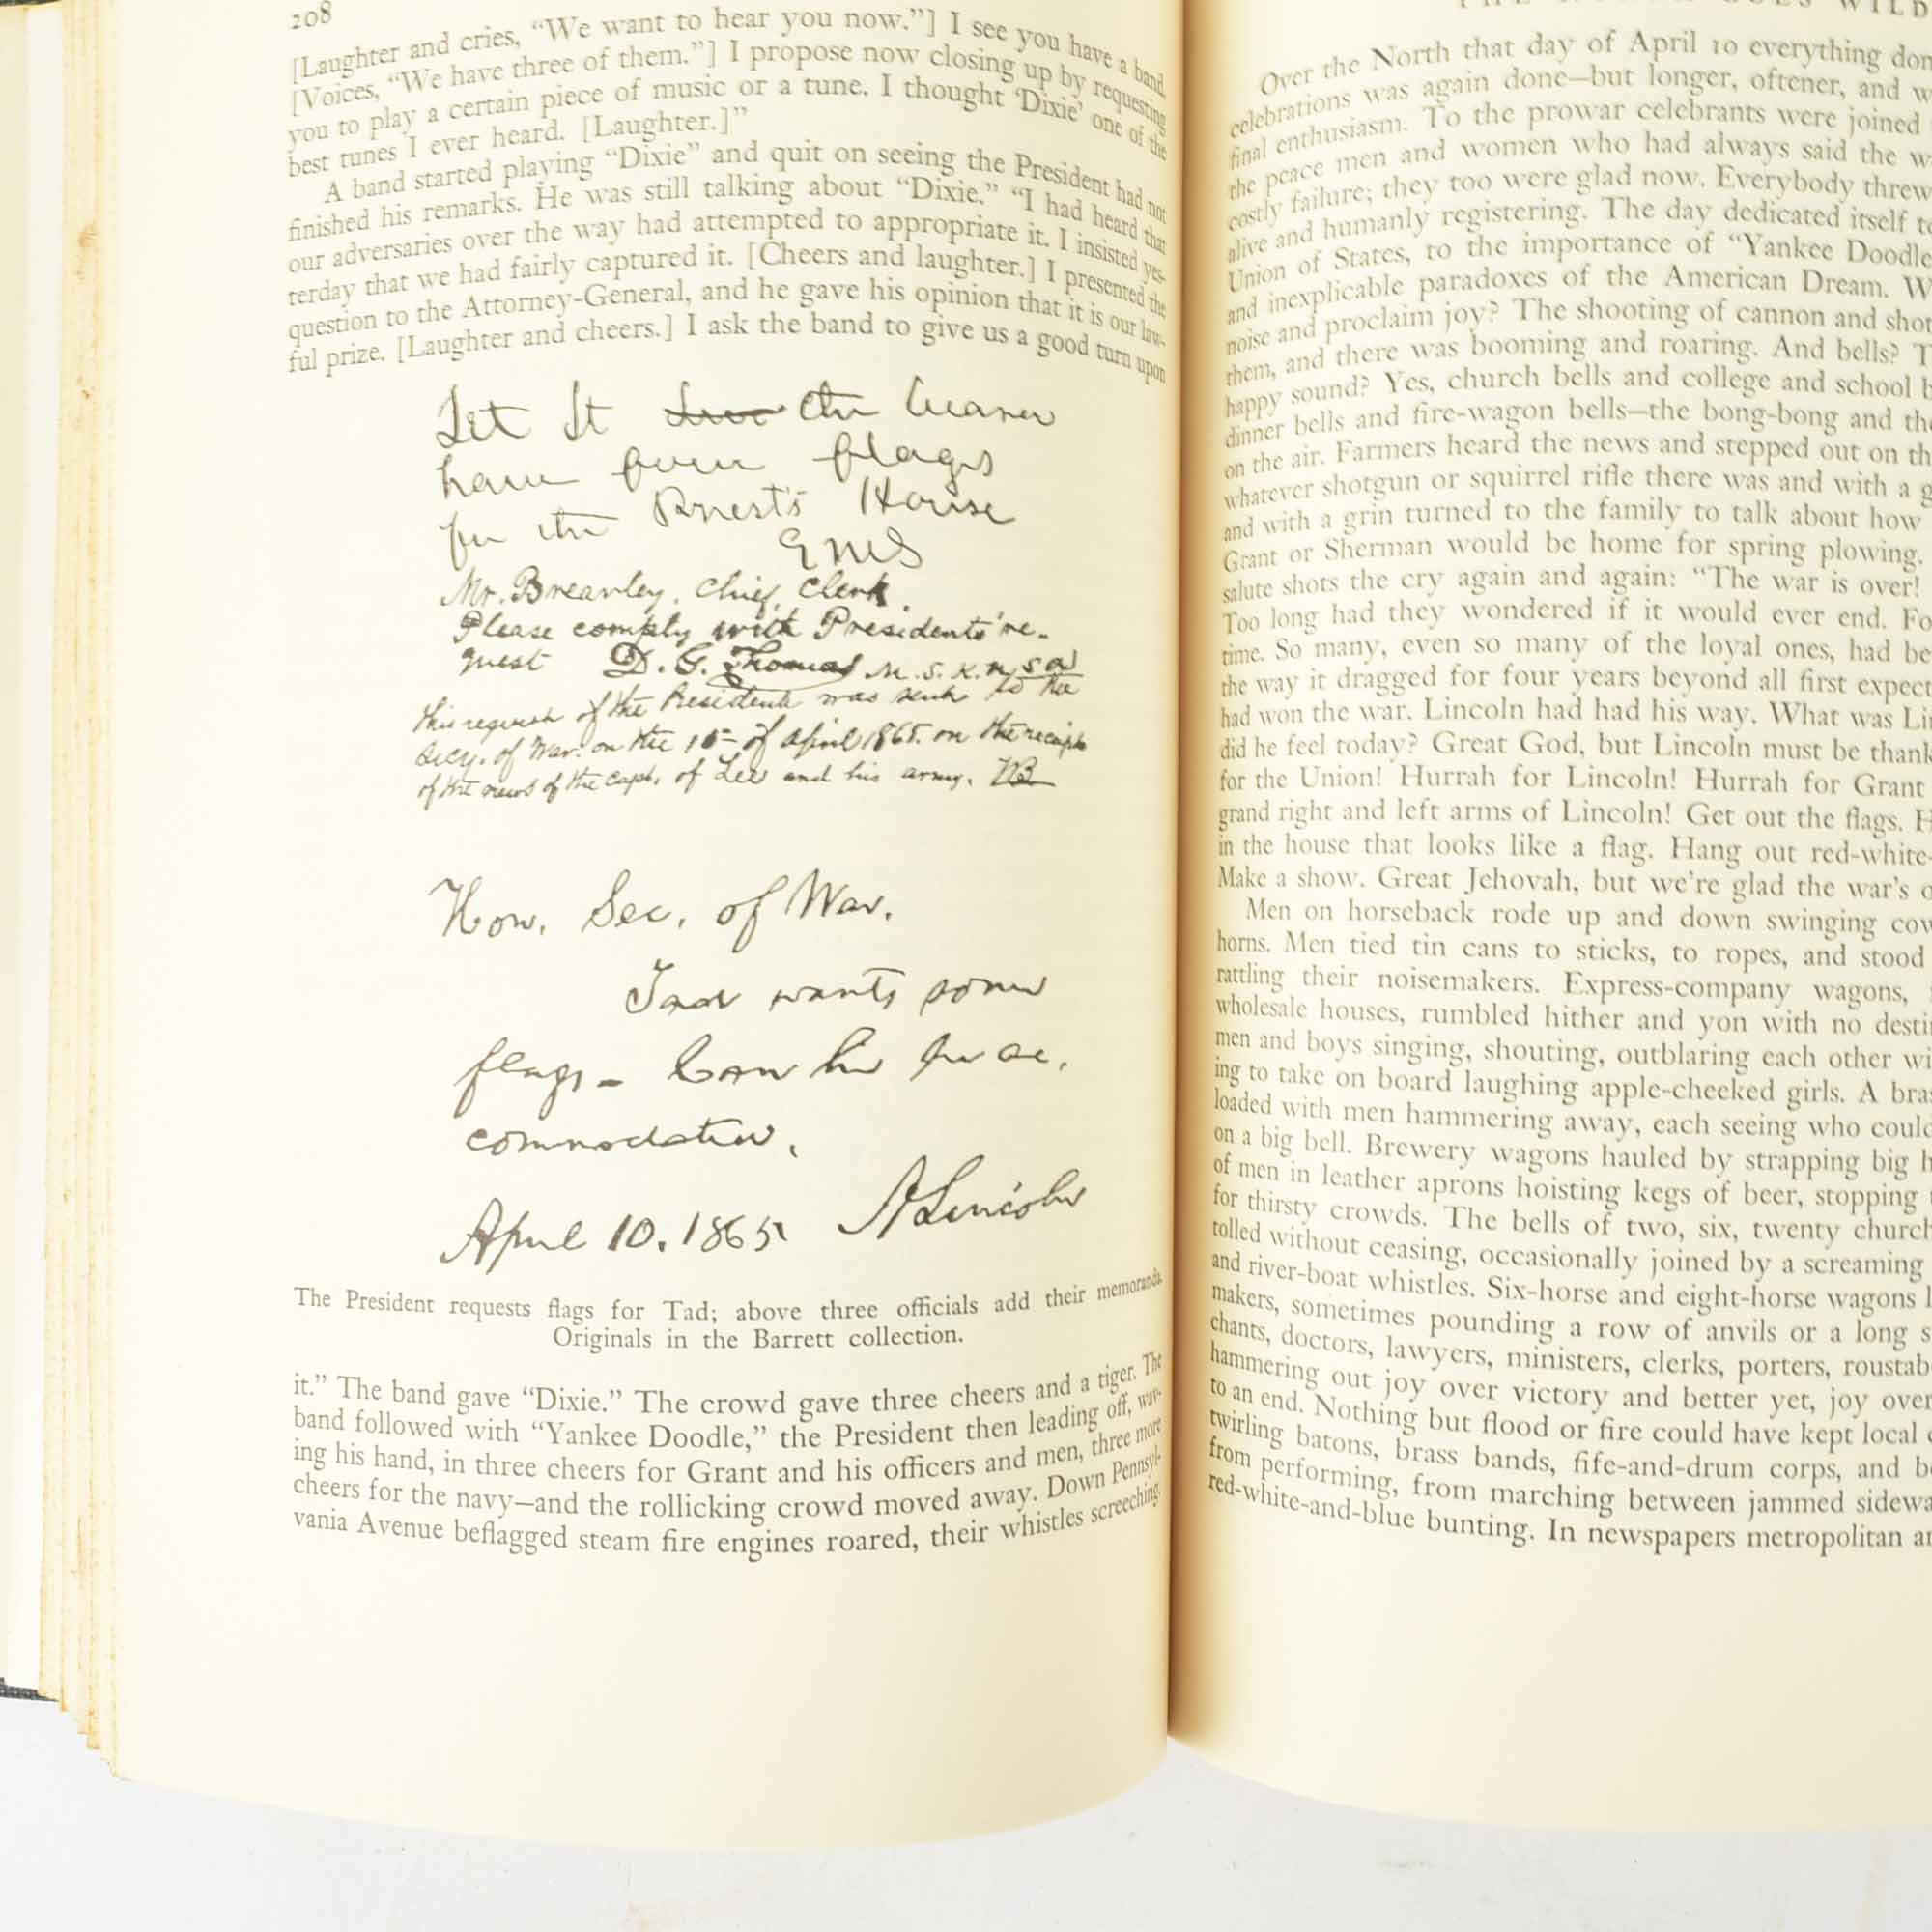 208
[Laughter and cries, “We want to hear you now.”] I see you have a band.
[Voices, “We have three of them.”] I propose now closing up by requesting
you to play a certain piece of music or a tune. I thought ‘Dixie’ one of the
best tunes I ever heard. [Laughter.]”
A band started playing “Dixie” and quit on seeing the President had not
finished his remarks. He was still talking about “Dixie.” “I had heard that
our adversaries over the way had attempted to appropriate it. I insisted yes-
terday that we had fairly captured it. [Cheers and laughter.] I presented the
question to the Attorney-General, and he gave his opinion that it is our law-
ful prize. [Laughter and cheers.] I ask the band to give us a good turn upon
Let Lt the bearer
have four flags
for the Priest's House
Mr. Brearley, Chief Clerk.
Please comply with Presidents' re-
quest D. G. Thomas M. S. K. n S a
This request of the President was sent to the
Secy. of War. on the 10 of April 1865. on the receipt
of the news of the capt. of Lee and his army. NB
Hon. Sec. of War.
Tad wants some
flags - Can he be ac.
commodated.
April 10. 1865 A Lincoln
The President requests flags for Tad; above three officials add their memoranda.
Originals in the Barrett collection.
it.” The band gave “Dixie.” The crowd gave three cheers and a tiger. The
band followed with “Yankee Doodle,” the President then leading off, wav-
ing his hand, in three cheers for Grant and his officers and men, three more
cheers for the navy—and the rollicking crowd moved away. Down Pennsyl-
vania Avenue beflagged steam fire engines roared, their whistles screeching.
WILD
Over the North that day of April 10 everything don
celebrations was again done—but longer, oftener, and w
final enthusiasm. To the prowar celebrants were joined
the peace men and women who had always said the w
costly failure; they too were glad now. Everybody threw
alive and humanly registering. The day dedicated itself to
Union of States, to the importance of “Yankee Doodle
and inexplicable paradoxes of the American Dream. W
noise and proclaim joy? The shooting of cannon and shot
them, and there was booming and roaring. And bells? T
happy sound? Yes, church bells and college and school b
dinner bells and fire-wagon bells—the bong-bong and the
on the air. Farmers heard the news and stepped out on th
whatever shotgun or squirrel rifle there was and with a g
and with a grin turned to the family to talk about how
Grant or Sherman would be home for spring plowing.
salute shots the cry again and again: “The war is over!
Too long had they wondered if it would ever end. Fo
time. So many, even so many of the loyal ones, had be
the way it dragged for four years beyond all first expect
had won the war. Lincoln had had his way. What was Li
did he feel today? Great God, but Lincoln must be thank
for the Union! Hurrah for Lincoln! Hurrah for Grant
grand right and left arms of Lincoln! Get out the flags. H
in the house that looks like a flag. Hang out red-white-
Make a show. Great Jehovah, but we’re glad the war’s o
Men on horseback rode up and down swinging cow
horns. Men tied tin cans to sticks, to ropes, and stood
rattling their noisemakers. Express-company wagons,
wholesale houses, rumbled hither and yon with no desti
men and boys singing, shouting, outblaring each other wi
ing to take on board laughing apple-cheeked girls. A bras
loaded with men hammering away, each seeing who could
on a big bell. Brewery wagons hauled by strapping big h
of men in leather aprons hoisting kegs of beer, stopping
for thirsty crowds. The bells of two, six, twenty church
tolled without ceasing, occasionally joined by a screaming
and river-boat whistles. Six-horse and eight-horse wagons l
makers, sometimes pounding a row of anvils or a long s
chants, doctors, lawyers, ministers, clerks, porters, roustab
hammering out joy over victory and better yet, joy over
to an end. Nothing but flood or fire could have kept local
twirling batons, brass bands, fife-and-drum corps, and b
from performing, from marching between jammed sidewa
red-white-and-blue bunting. In newspapers metropolitan a